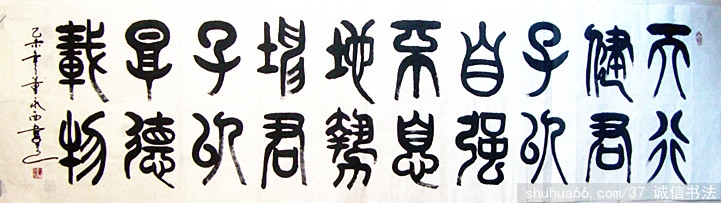 天行
健君
子以
自强
不息
地勢
坤君
子以
厚德
載物
乙未
shuhua66.com/37 诚信书法